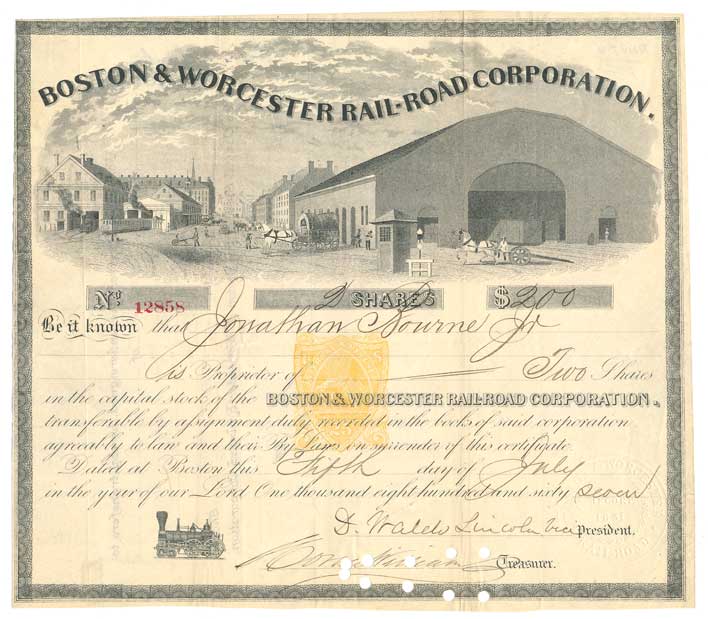 BOSTON & WORCESTER RAIL-ROAD CORPORATION.
No. 12858 2 SHARES $200
Be it known that Jonathan Bourne Jr
is Proprietor of Two Shares
in the capital stock of the BOSTON & WORCESTER RAIL-ROAD CORPORATION.
transferable by assignment duly recorded in the books of said corporation
agreeably to law and their By Laws on surrender of this certificate
Dated at Boston this Fifth day of July
in the year of our Lord One thousand eight hundred and sixty seven
D. Waldo Lincoln Vice President.
Treasurer.